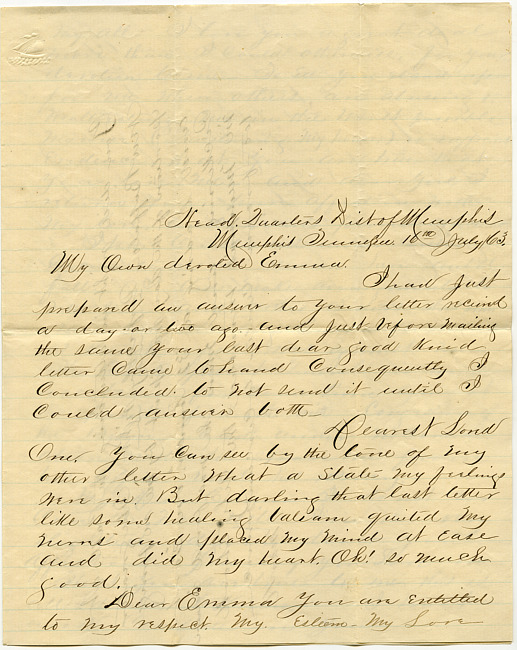 Head. Quarters Dist of Memphis
Memphis Tennessee 16th July 63.
My Own devoted Emma.
I had just
prepared an answer to your letter received
a day or two ago. and just before mailing
the same your last dear good kind
letter Came to hand Consequently I
Concluded. to not send it until I
Could answer both_
Dearest Loved
One. You Can see by the tone of my
other letter What a State my feelings
were in. But darling that last letter
like some healing balsam quieted My
nerves and placed my mind at ease
and did my heart. Oh! so much
good.
Dear Emma You are entitled
to my respect. My. Esteem My Love